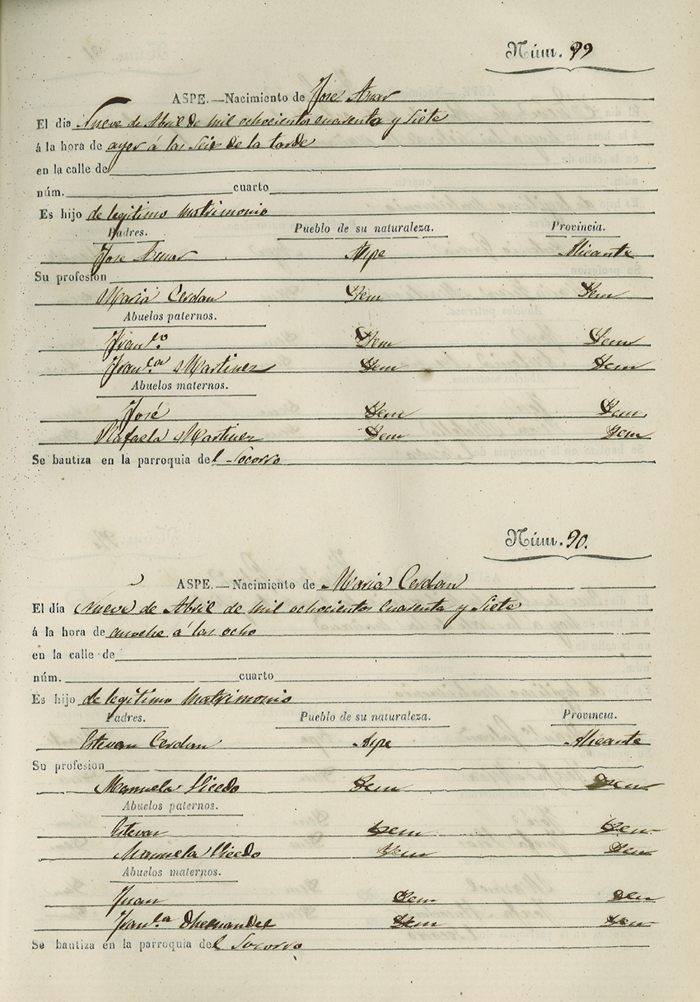 Núm. 89
ASPE.—Nacimiento de José
El día Nueve de Abril de mil ochocientos cuarenta y Siete
á la hora de ayer a las Seis de la tarde
en la calle de
núm. cuarto
Es hijo de legitimo matrimonio
Padres. Pueblo de su naturaleza. Provincia.
José Aspe Alicante
Su profesion
Maria Cerdan Ydem Ydem
Abuelos paternos.
Franco. Ydem Ydem
Franca. Martinez Ydem Ydem
Abuelos maternos.
José Ydem Ydem
Rafaela Martinez Ydem Ydem
Se bautiza en la parroquia del Socorro
Núm. 90.
ASPE.—Nacimiento de Maria Cerdan
El día Nueve de Abril de mil ochocientos cuarenta y Siete
á la hora de anoche á las ocho
en la calle de
núm. cuarto
Es hijo de legitimo matrimonio
Padres. Pueblo de su naturaleza. Provincia.
Estevan Cerdan Aspe Alicante
Su profesion
Manuela Vicedo Ydem Ydem
Abuelos paternos.
Estevan Ydem Ydem
Manuela Vicedo Ydem Ydem
Abuelos maternos.
Juan Ydem Ydem
Franca. Ydem Ydem
Se bautiza en la parroquia del Socorro